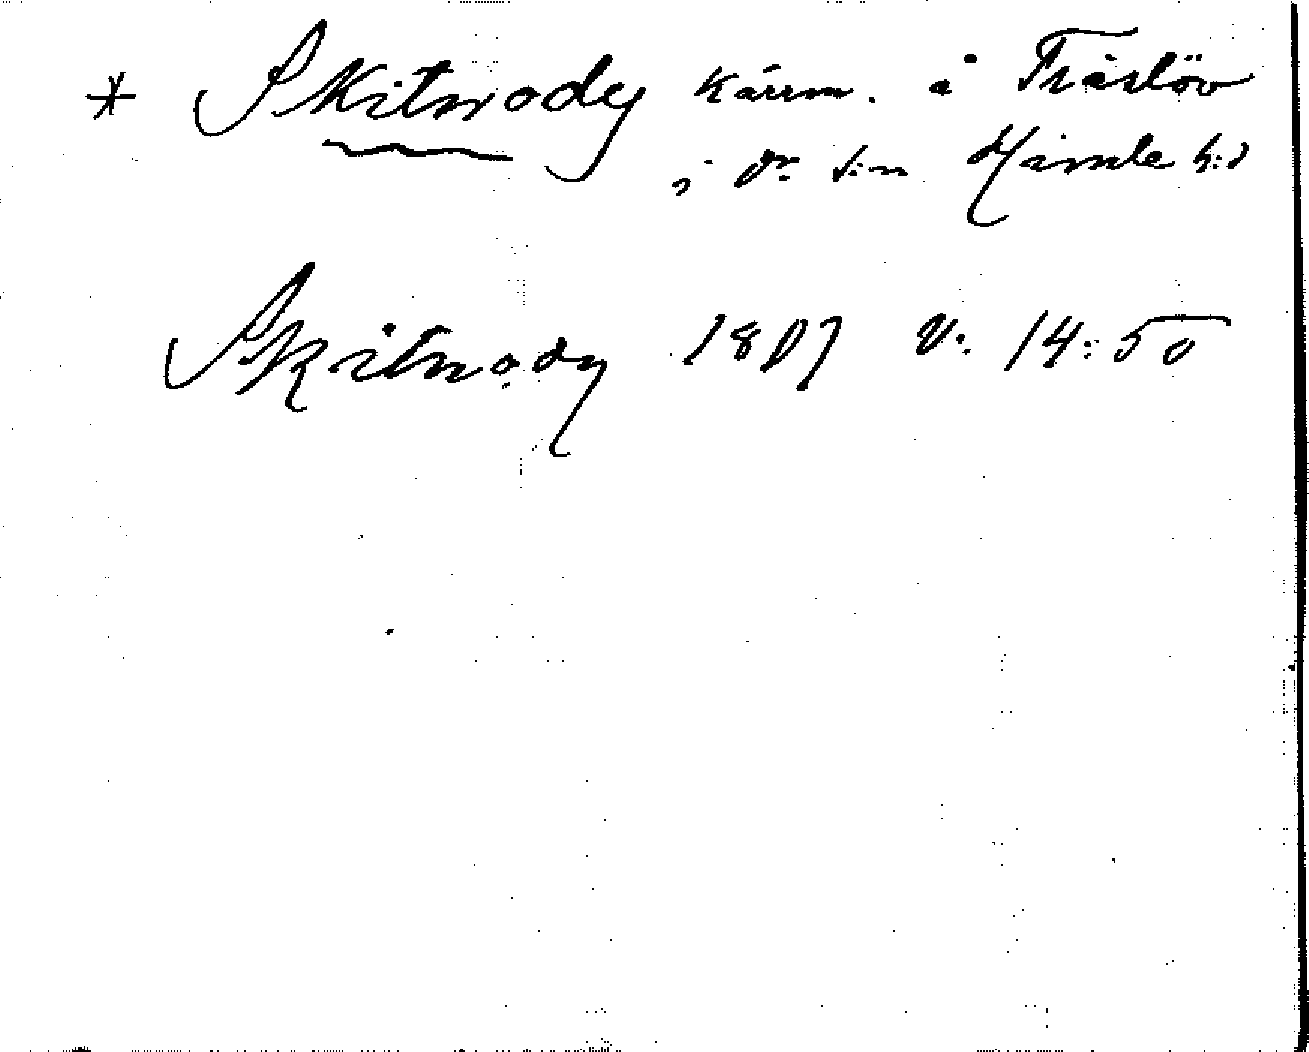 * Skitnody kärrm. å Träslöv
i d:o s:n Himle h:d
Skitnody 1807 V: 14:50